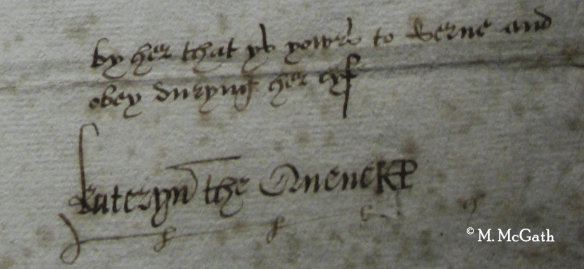 by her that ys yowrs to serve and
obey duryng her lyf
Kateryn the Quene KP
© M. McGath